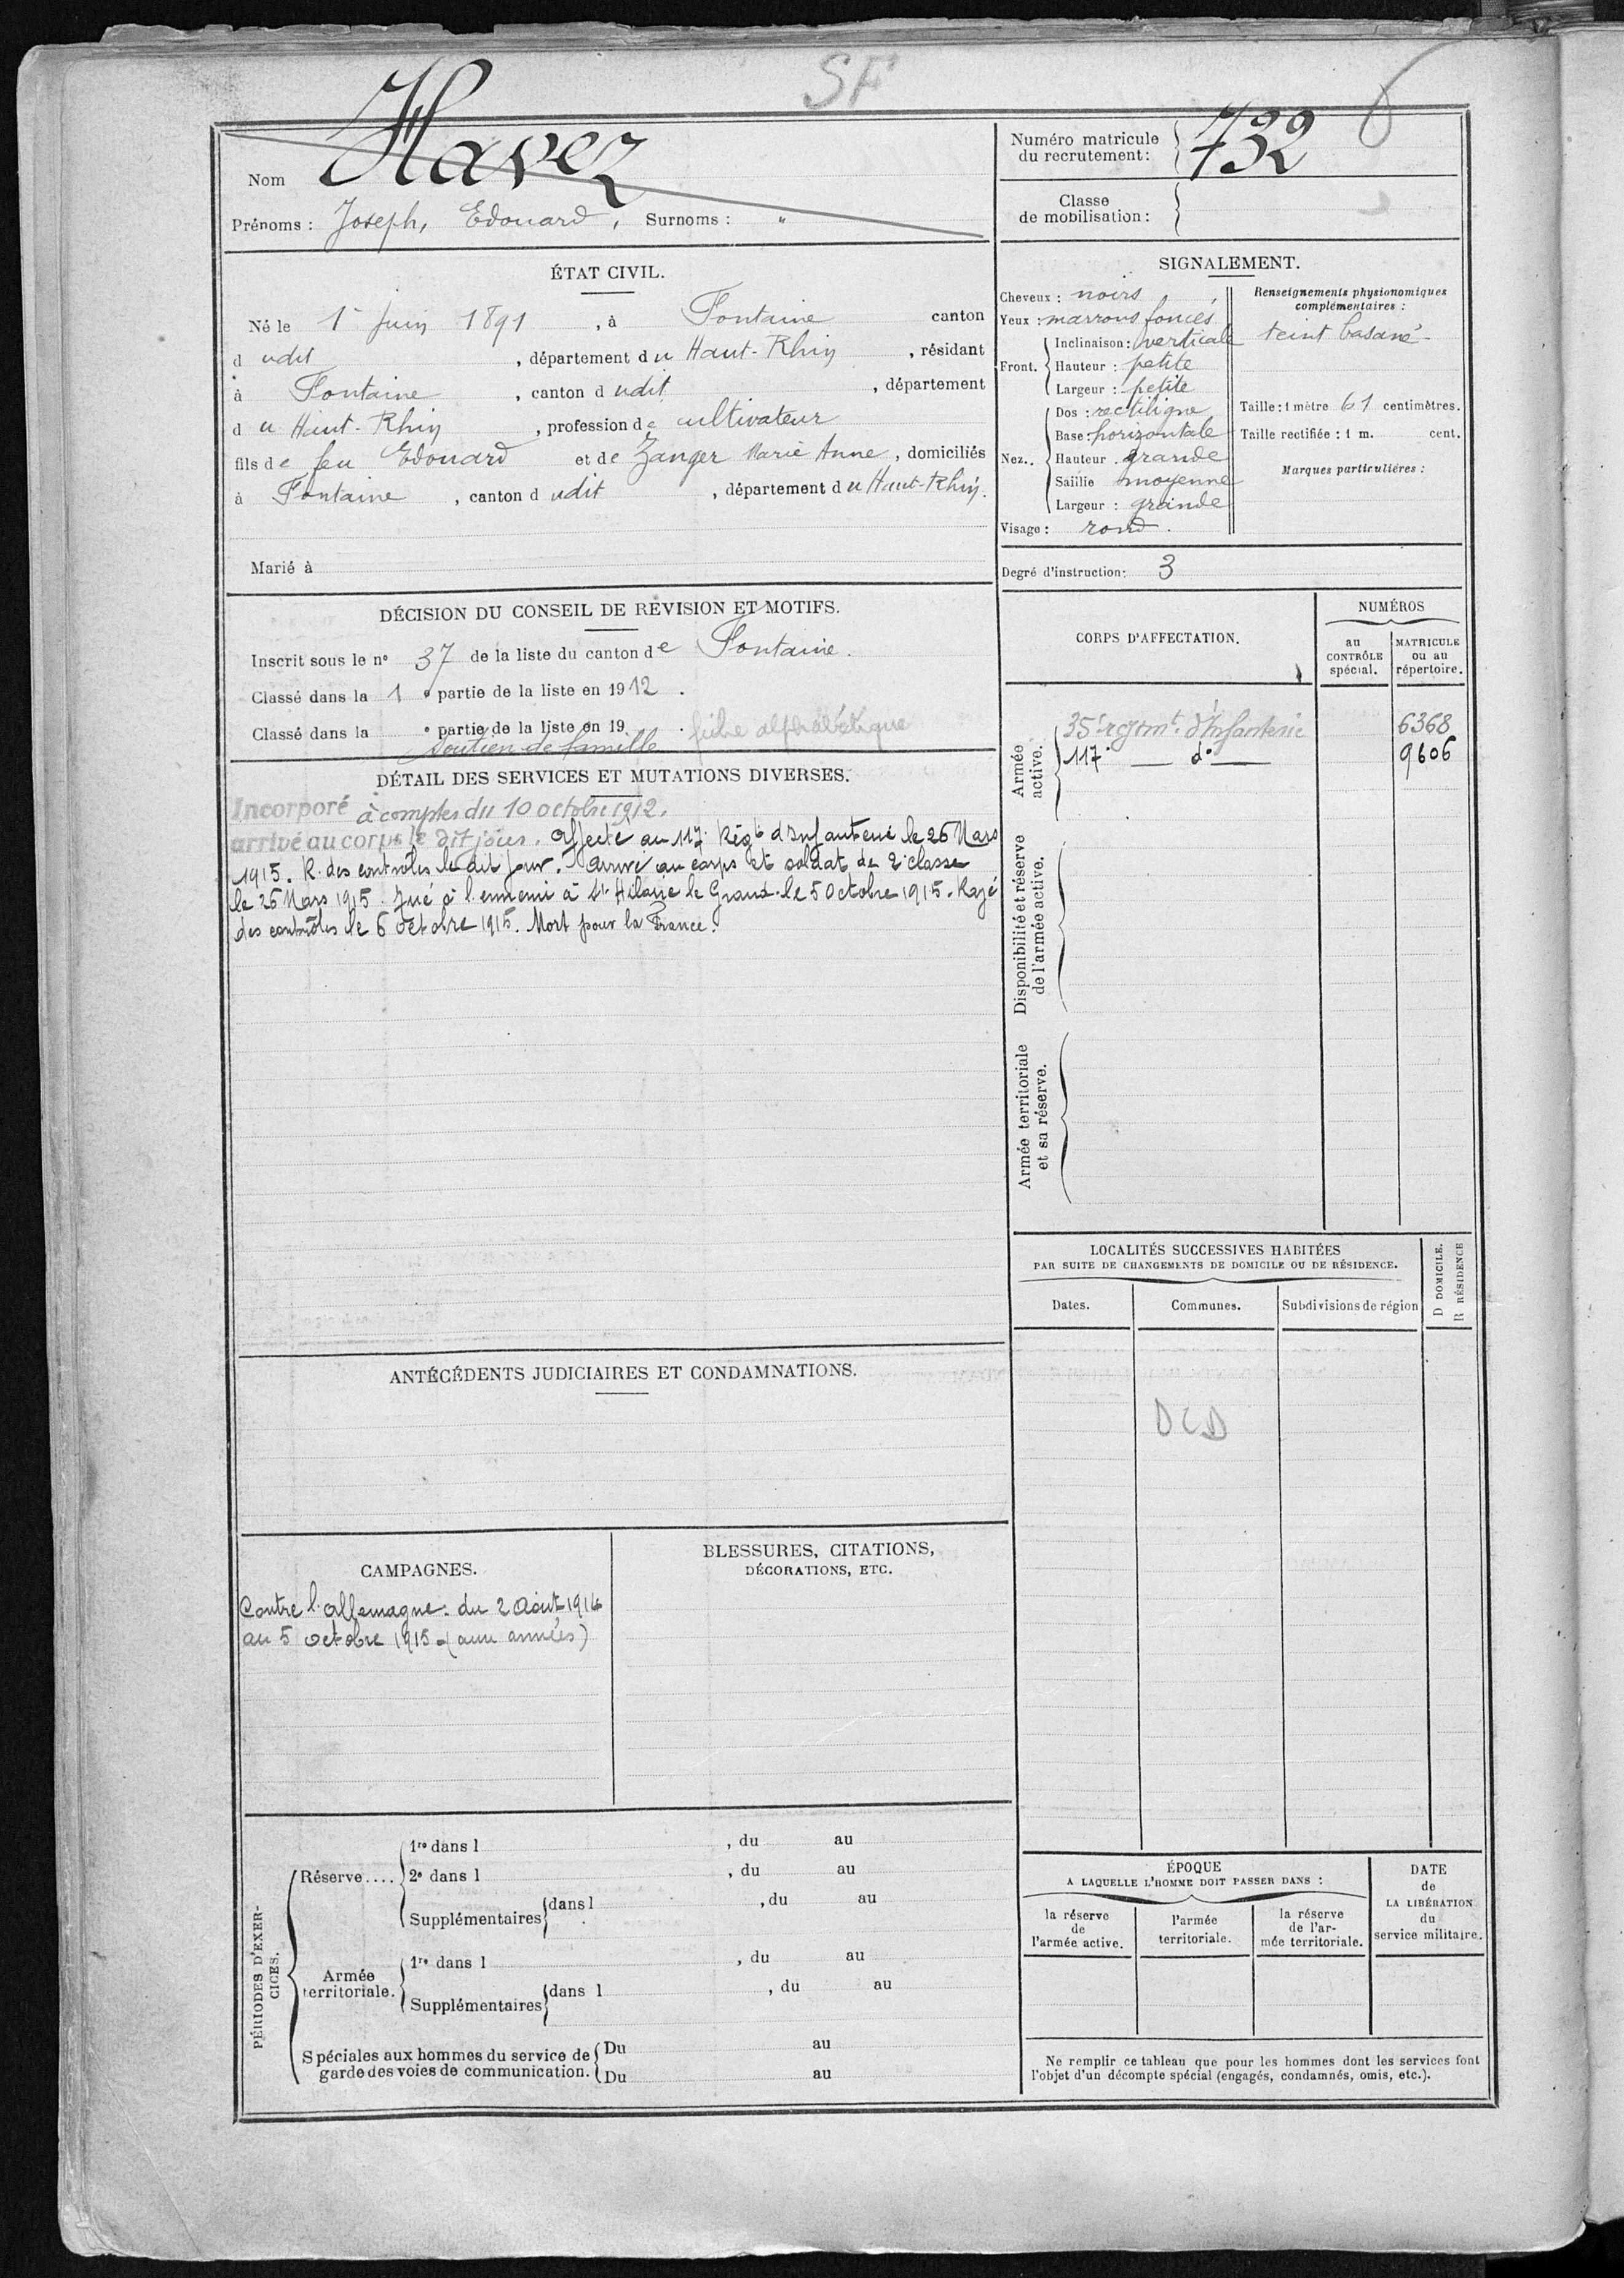 SF
6
Nom Havez
Prénoms : Joseph, Edouard, Surnoms : "
Numéro matricule du recrutement : 732
Classe de mobilisation :
ÉTAT CIVIL.
Né le 1er Juin 1891, à Fontaine canton
d udit, département du Haut-Rhin, résidant
à Fontaine, canton d udit, département
du Haut-Rhin, profession de cultivateur
fils de feu Edouard et de Zanger Marie Anne, domiciliés
à Fontaine, canton d udit, département du Haut-Rhin.
Marié à
SIGNALEMENT.
Cheveux : noirs
Yeux : marrons foncés
Front. Inclinaison : verticale
Hauteur : petite
Largeur : petite
Nez.. Dos : rectiligne
Base : horizontale
Hauteur : grande
Saillie moyenne
Largeur : grande
Visage : rond.
Renseignements physionomiques complémentaires :
teint basané
Taille : 1 mètre 61 centimètres.
Taille rectifiée : 1 m. cent.
Marques particulières :
Degré d'instruction : 3
DÉCISION DU CONSEIL DE RÉVISION ET MOTIFS.
Inscrit sous le n° 37 de la liste du canton de Fontaine.
Classé dans la 1e partie de la liste en 1912.
Classé dans la e partie de la liste en 19 . fiche alphabétique
Soutien de famille
DÉTAIL DES SERVICES ET MUTATIONS DIVERSES.
Incorporé à compter du 10 octobre 1912.
arrivé au corps le dit jour. Affecté au 117e Régt d'Infanterie le 26 Mars
1915. R. des contrôles le dit jour. Arrivé au corps et soldat de 2e classe
le 26 Mars 1915. Tué à l'ennemi à St Hilaire le Grand le 5 Octobre 1915. Rayé
des contrôles le 6 Octobre 1915. Mort pour la France.
CORPS D'AFFECTATION.
NUMÉROS
au CONTRÔLE spécial.
MATRICULE ou au répertoire.
Armée active.
35e regimt. d'Infanterie 6368
117e — do — 9606
Disponibilité et réserve de l'armée active.
Armée territoriale et sa réserve.
LOCALITÉS SUCCESSIVES HABITÉES
PAR SUITE DE CHANGEMENTS DE DOMICILE OU DE RÉSIDENCE.
Dates.
Communes.
Subdivisions de région
D DOMICILE.
R RÉSIDENCE
DCD
ANTÉCÉDENTS JUDICIAIRES ET CONDAMNATIONS.
CAMPAGNES.
Contre l'Allemagne. du 2 Août 1914
au 5 octobre 1915 (aux armées)
BLESSURES, CITATIONS,
DÉCORATIONS, ETC.
PÉRIODES D'EXERCICES.
Réserve.... 1re dans l , du au
2e dans l , du au
Supplémentaires dans l , du au
Armée territoriale. 1re dans l , du au
Supplémentaires dans l , du au
Spéciales aux hommes du service de garde des voies de communication. Du au
Du au
ÉPOQUE
A LAQUELLE L'HOMME DOIT PASSER DANS :
la réserve de l'armée active.
l'armée territoriale.
la réserve de l'armée territoriale.
DATE de LA LIBÉRATION du service militaire.
Ne remplir ce tableau que pour les hommes dont les services font
l'objet d'un décompte spécial (engagés, condamnés, omis, etc.).